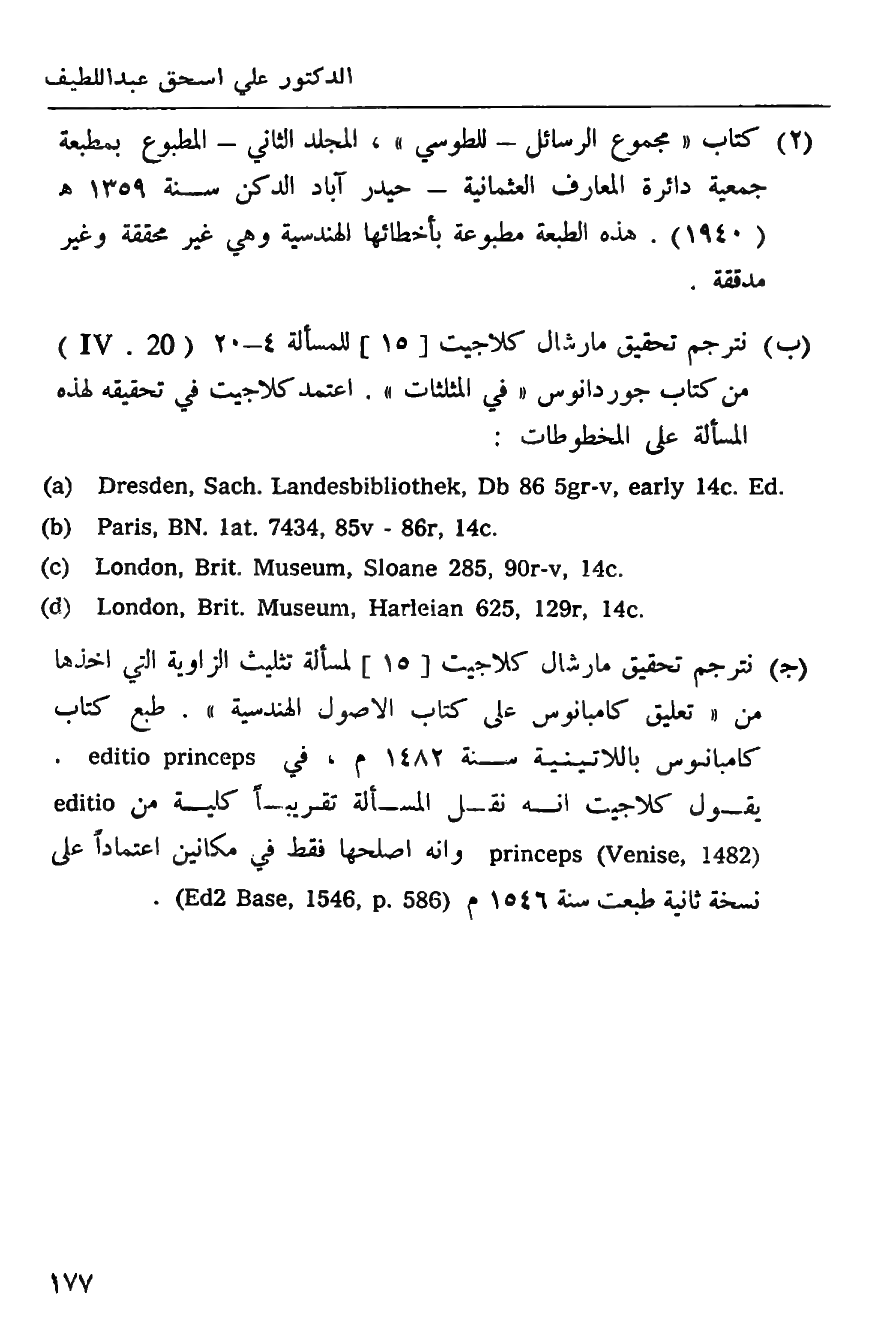 الدكتور علي اسحق عبداللطيف
(٢) كتاب « مجموع الرسائل – للطوسي » ، المجلد الثاني – المطبوع بمطبعة
جمعية دائرة المعارف العثمانية – حيدر آباد الدكن سنة ١٣٥٩ هـ
( ١٩٤٠ ) . هذه الطبعة مطبوعة بأخطائها الهندسية وهي غير محققة وغير
مدققة .
(ب) نترجم تحقيق مارشال كلاجيت [ ١٥ ] للمسألة ٤–٢٠ ( IV . 20 )
من كتاب جوردانوس « في المثلثات » . اعتمد كلاجيت في تحقيقه لهذه
المسألة على المخطوطات :
(a) Dresden, Sach. Landesbibliothek, Db 86 5gr-v, early 14c. Ed.
(b) Paris, BN. lat. 7434, 85v - 86r, 14c.
(c) London, Brit. Museum, Sloane 285, 90r-v, 14c.
(d) London, Brit. Museum, Harleian 625, 129r, 14c.
(ج) نترجم تحقيق مارشال كلاجيت [ ١٥ ] لمسألة تثليث الزاوية التي اخذها
من « تعليق كامبانوس على كتاب الاصول الهندسية » . طبع كتاب
كامبانوس باللاتينية سنة ١٤٨٢ م ، في editio princeps .
يقول كلاجيت انه نقل المسألة تقريباً كلية من editio
princeps (Venise, 1482) وانه اصلحها فقط في مكانين اعتماداً على
نسخة ثانية طبعت سنة ١٥٤٦ م (Ed2 Base, 1546, p. 586) .
١٧٧